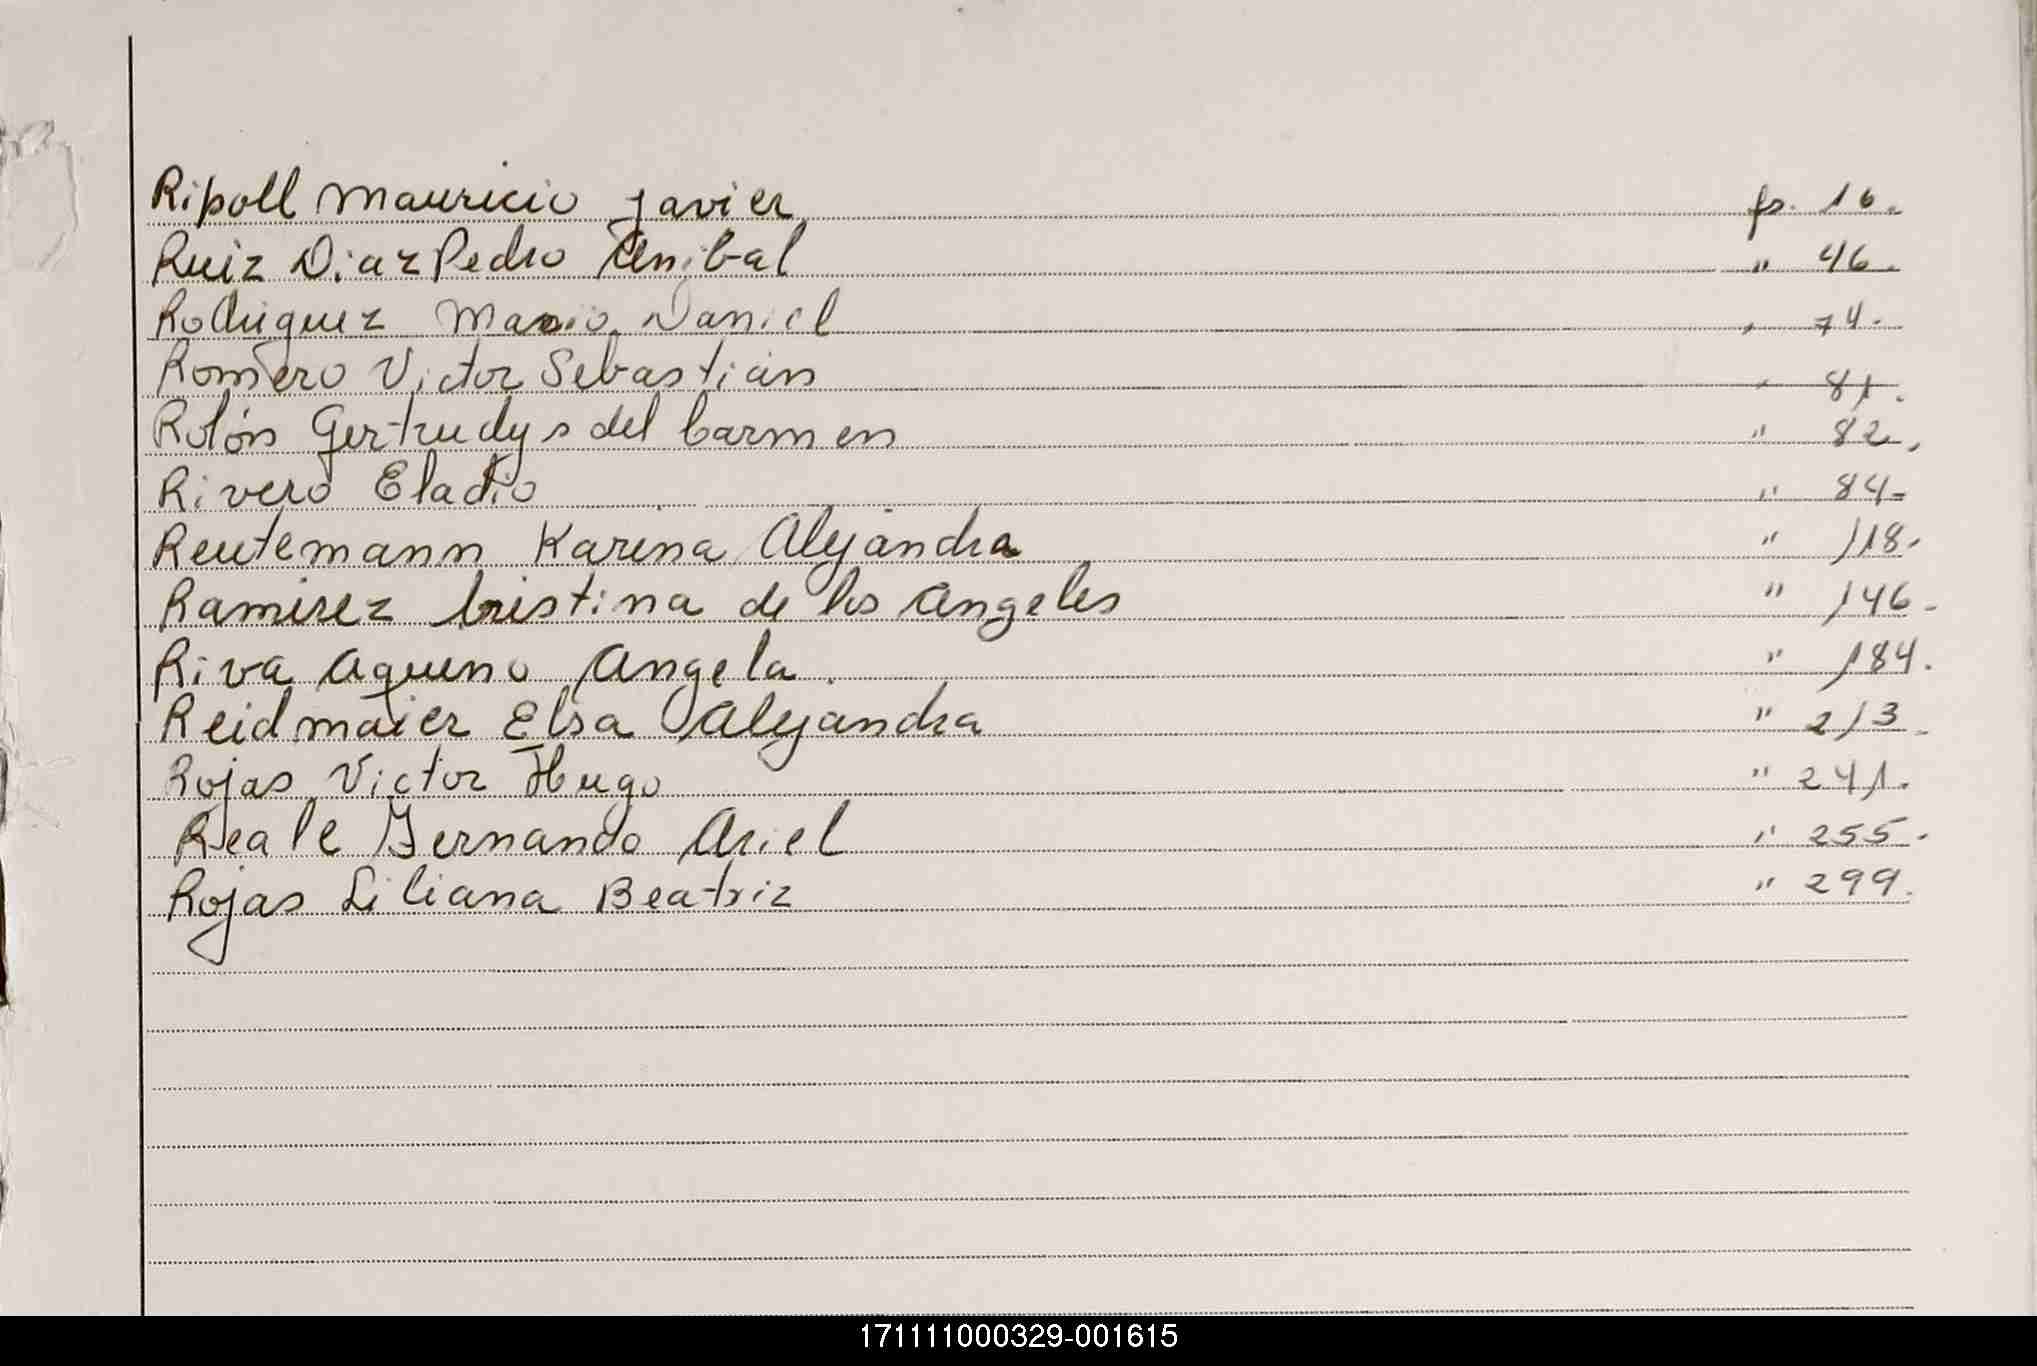 Ripoll Mauricio Javier fs. 16.
Ruiz Diaz Pedro Anibal " 46.
Rodriguez Mario Daniel " 74.
Romero Victor Sebastián " 81.
Rolón Gertrudys del Carmen " 82.
Rivero Eladio " 84-
Reutemann Karina Alejandra " 118.
Ramirez Cristina de los Angeles " 146.
Riva Aqueno Angela. " 184.
Reidmaier Elsa Alejandra " 213.
Rojas Victor Hugo " 241.
Reale Fernando Ariel " 255.
Rojas Liliana Beatriz " 299.
171111000329-001615